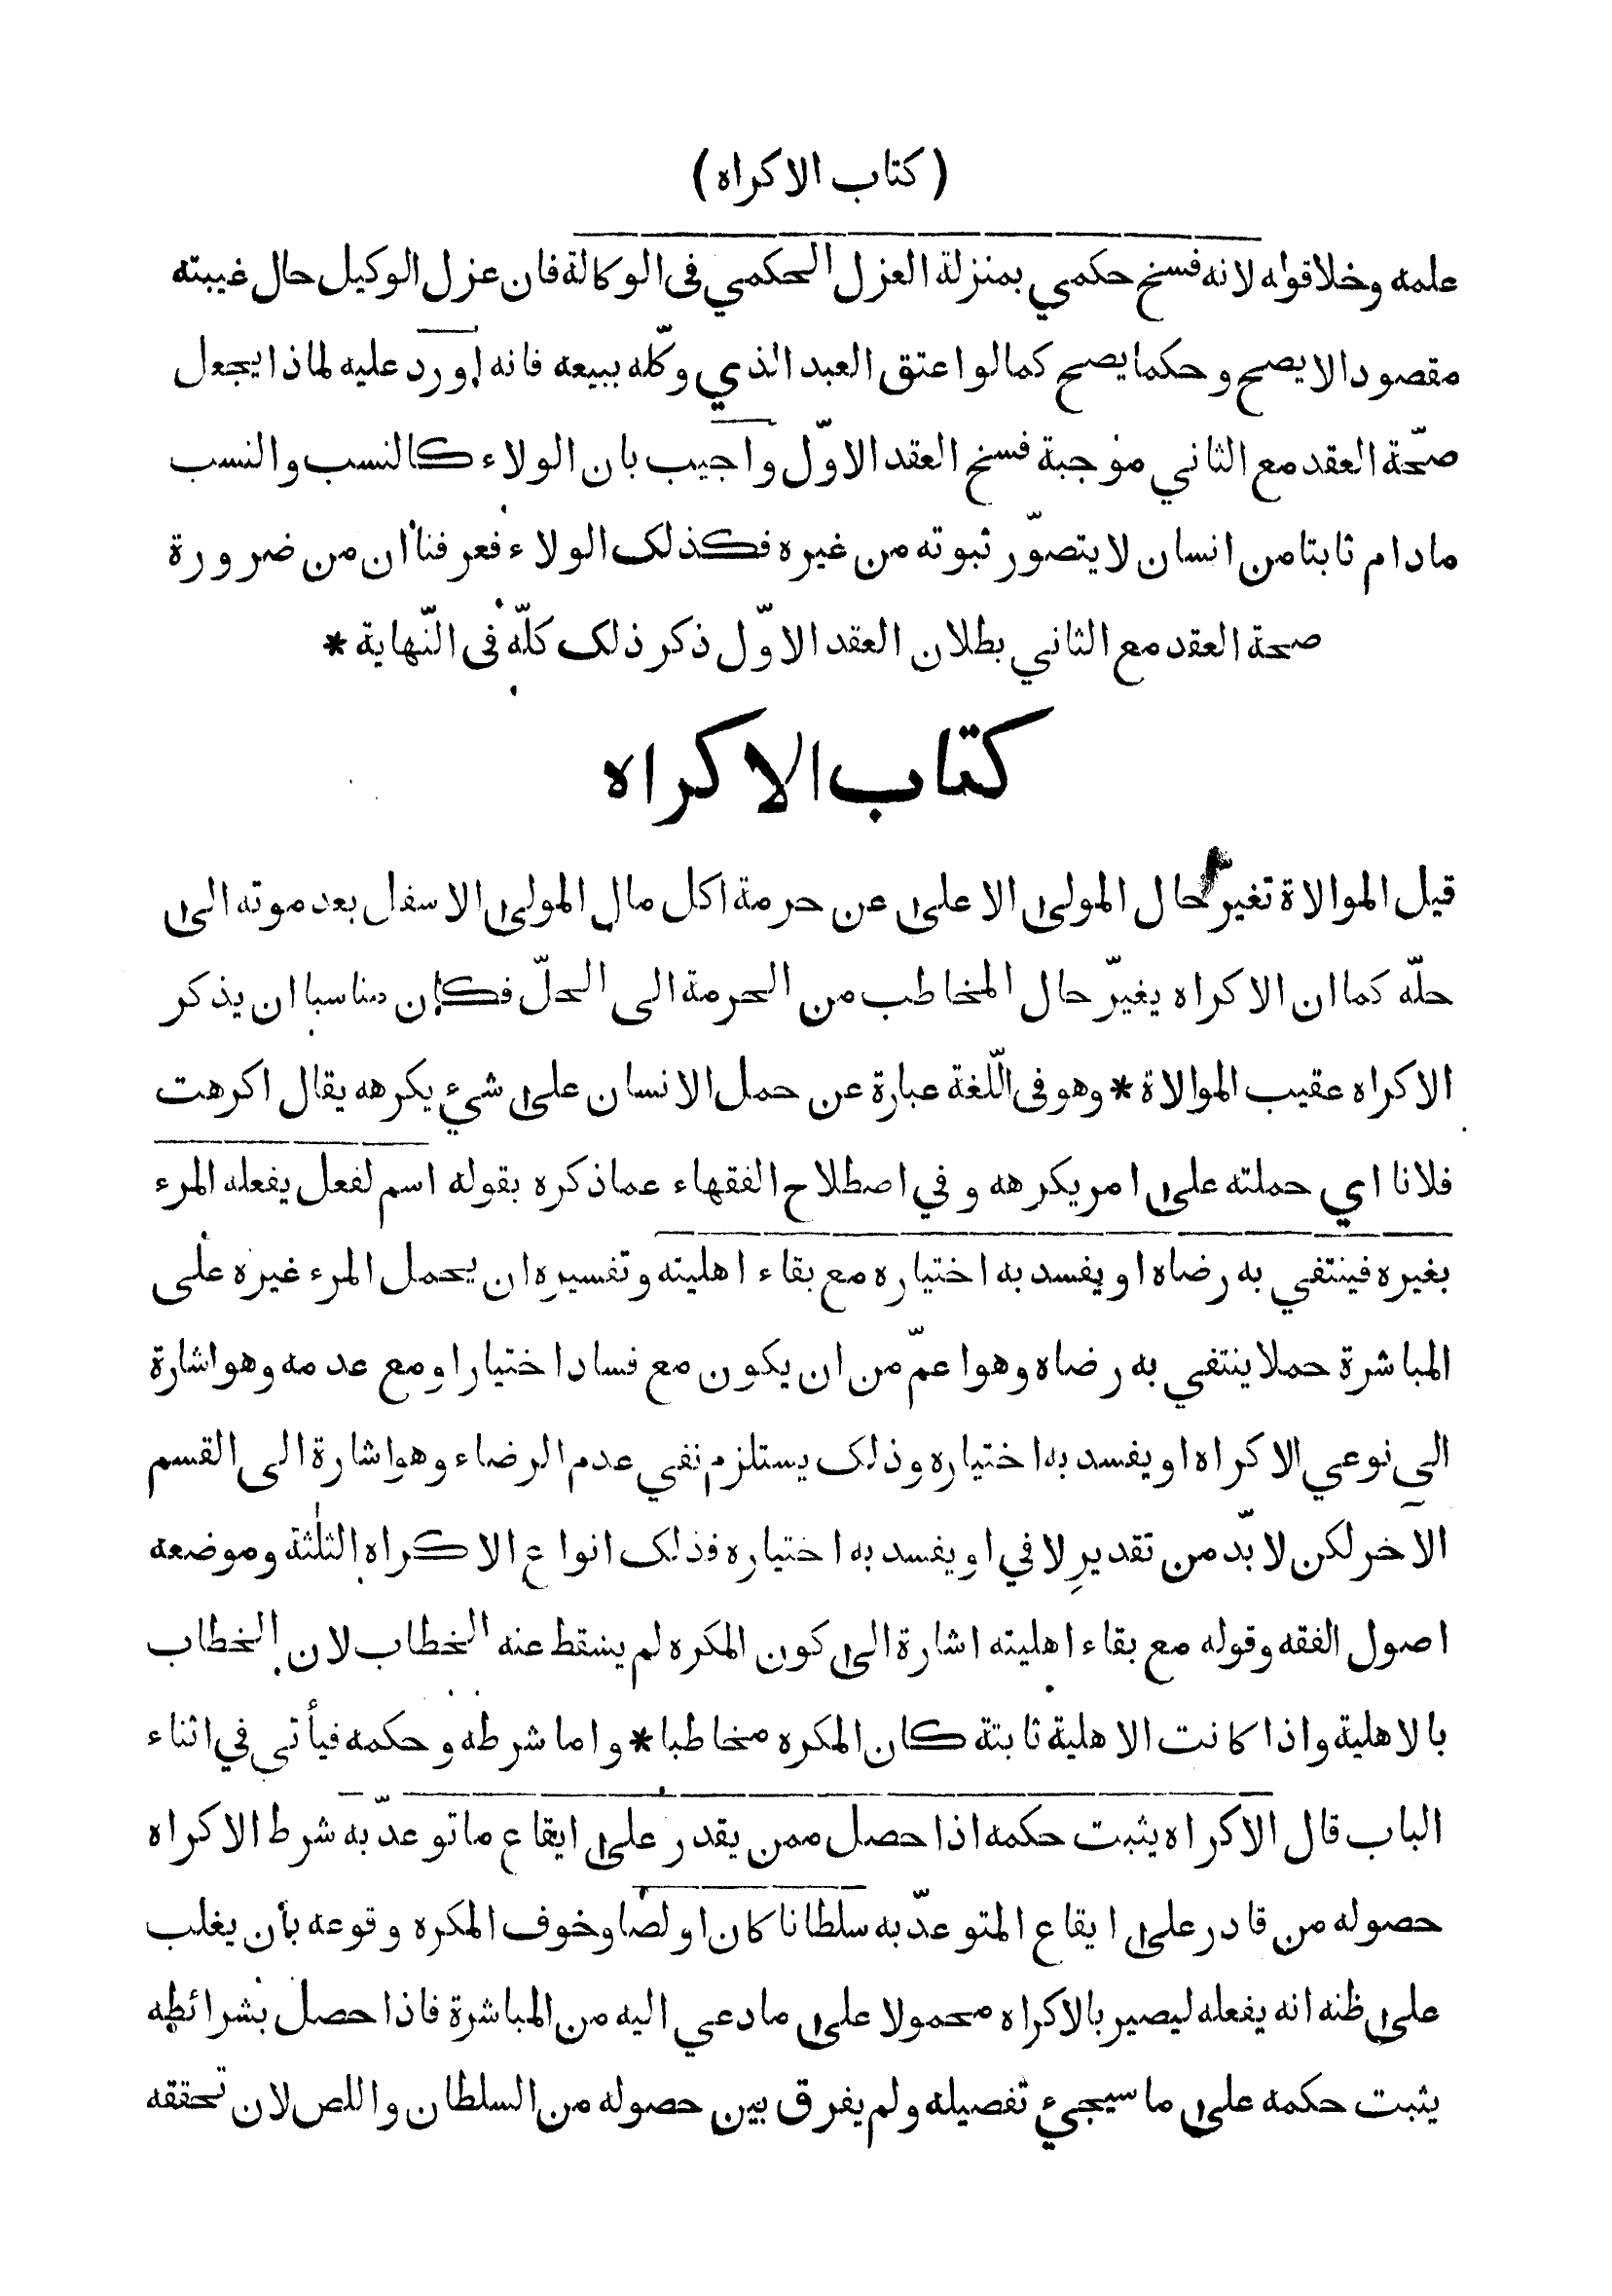 ( كتاب الاكراه )
علمه وخلا قوله لانه فسخ حكمي بمنزلة العزل الحكمي في الوكالة فان عزل الوكيل حال غيبته
مقصودا لا يصح وحكما يصح كما لو اعتق العبد الذي وكّله ببيعه فانه اورد عليه لماذا يجعل
صحّة العقد مع الثاني موجبة فسخ العقد الاوّل واجيب بان الولاء كالنسب والنسب
مادام ثابتا من انسان لا يتصوّر ثبوته من غيره فكذلك الولاء فعرفنا ان من ضرورة
صحة العقد مع الثاني بطلان العقد الاوّل ذكر ذلك كلّه في النّهاية *
كتاب الاكراه
قيل الموالاة تغيّر حال المولى الاعلى عن حرمة اكل مال المولى الاسفل بعد موته الى
حلّه كما ان الاكراه يغيّر حال المخاطب من الحرمة الى الحلّ فكان مناسبا ان يذكر
الاكراه عقيب الموالاة * وهو في اللّغة عبارة عن حمل الانسان على شيء يكرهه يقال اكرهت
فلانا اي حملته على امر يكرهه و في اصطلاح الفقهاء عما ذكره بقوله اسم لفعل يفعله المرء
بغيره فينتفي به رضاه او يفسد به اختياره مع بقاء اهليته وتفسيره ان يحمل المرء غيره على
المباشرة حملا ينتفي به رضاه وهو اعمّ من ان يكون مع فساد اختيار او مع عدمه وهو اشارة
الى نوعي الاكراه او يفسد به اختياره وذلك يستلزم نفي عدم الرضاء وهو اشارة الى القسم
الآخر لكن لا بدّ من تقديرِ لا في او يفسد به اختياره فذلك انواع الاكراه الثلٰثة وموضعه
اصول الفقه وقوله مع بقاء اهليته اشارة الى كون المكره لم يسقط عنه الخطاب لان الخطاب
بالاهلية واذا كانت الاهلية ثابتة كان المكره مخاطبا * واما شرطه وحكمه فيأتي في اثناء
الباب قال الاكراه يثبت حكمه اذا حصل ممن يقدر على ايقاع ما توعدّ به شرط الاكراه
حصوله من قادر على ايقاع المتوعدّ به سلطانا كان او لصا وخوف المكره وقوعه بأن يغلب
على ظنه انه يفعله ليصير بالاكراه محمولا على ما دعي اليه من المباشرة فاذا حصل بشرائطه
يثبت حكمه على ما سيجيء تفصيله ولم يفرق بين حصوله من السلطان واللص لان تحققه